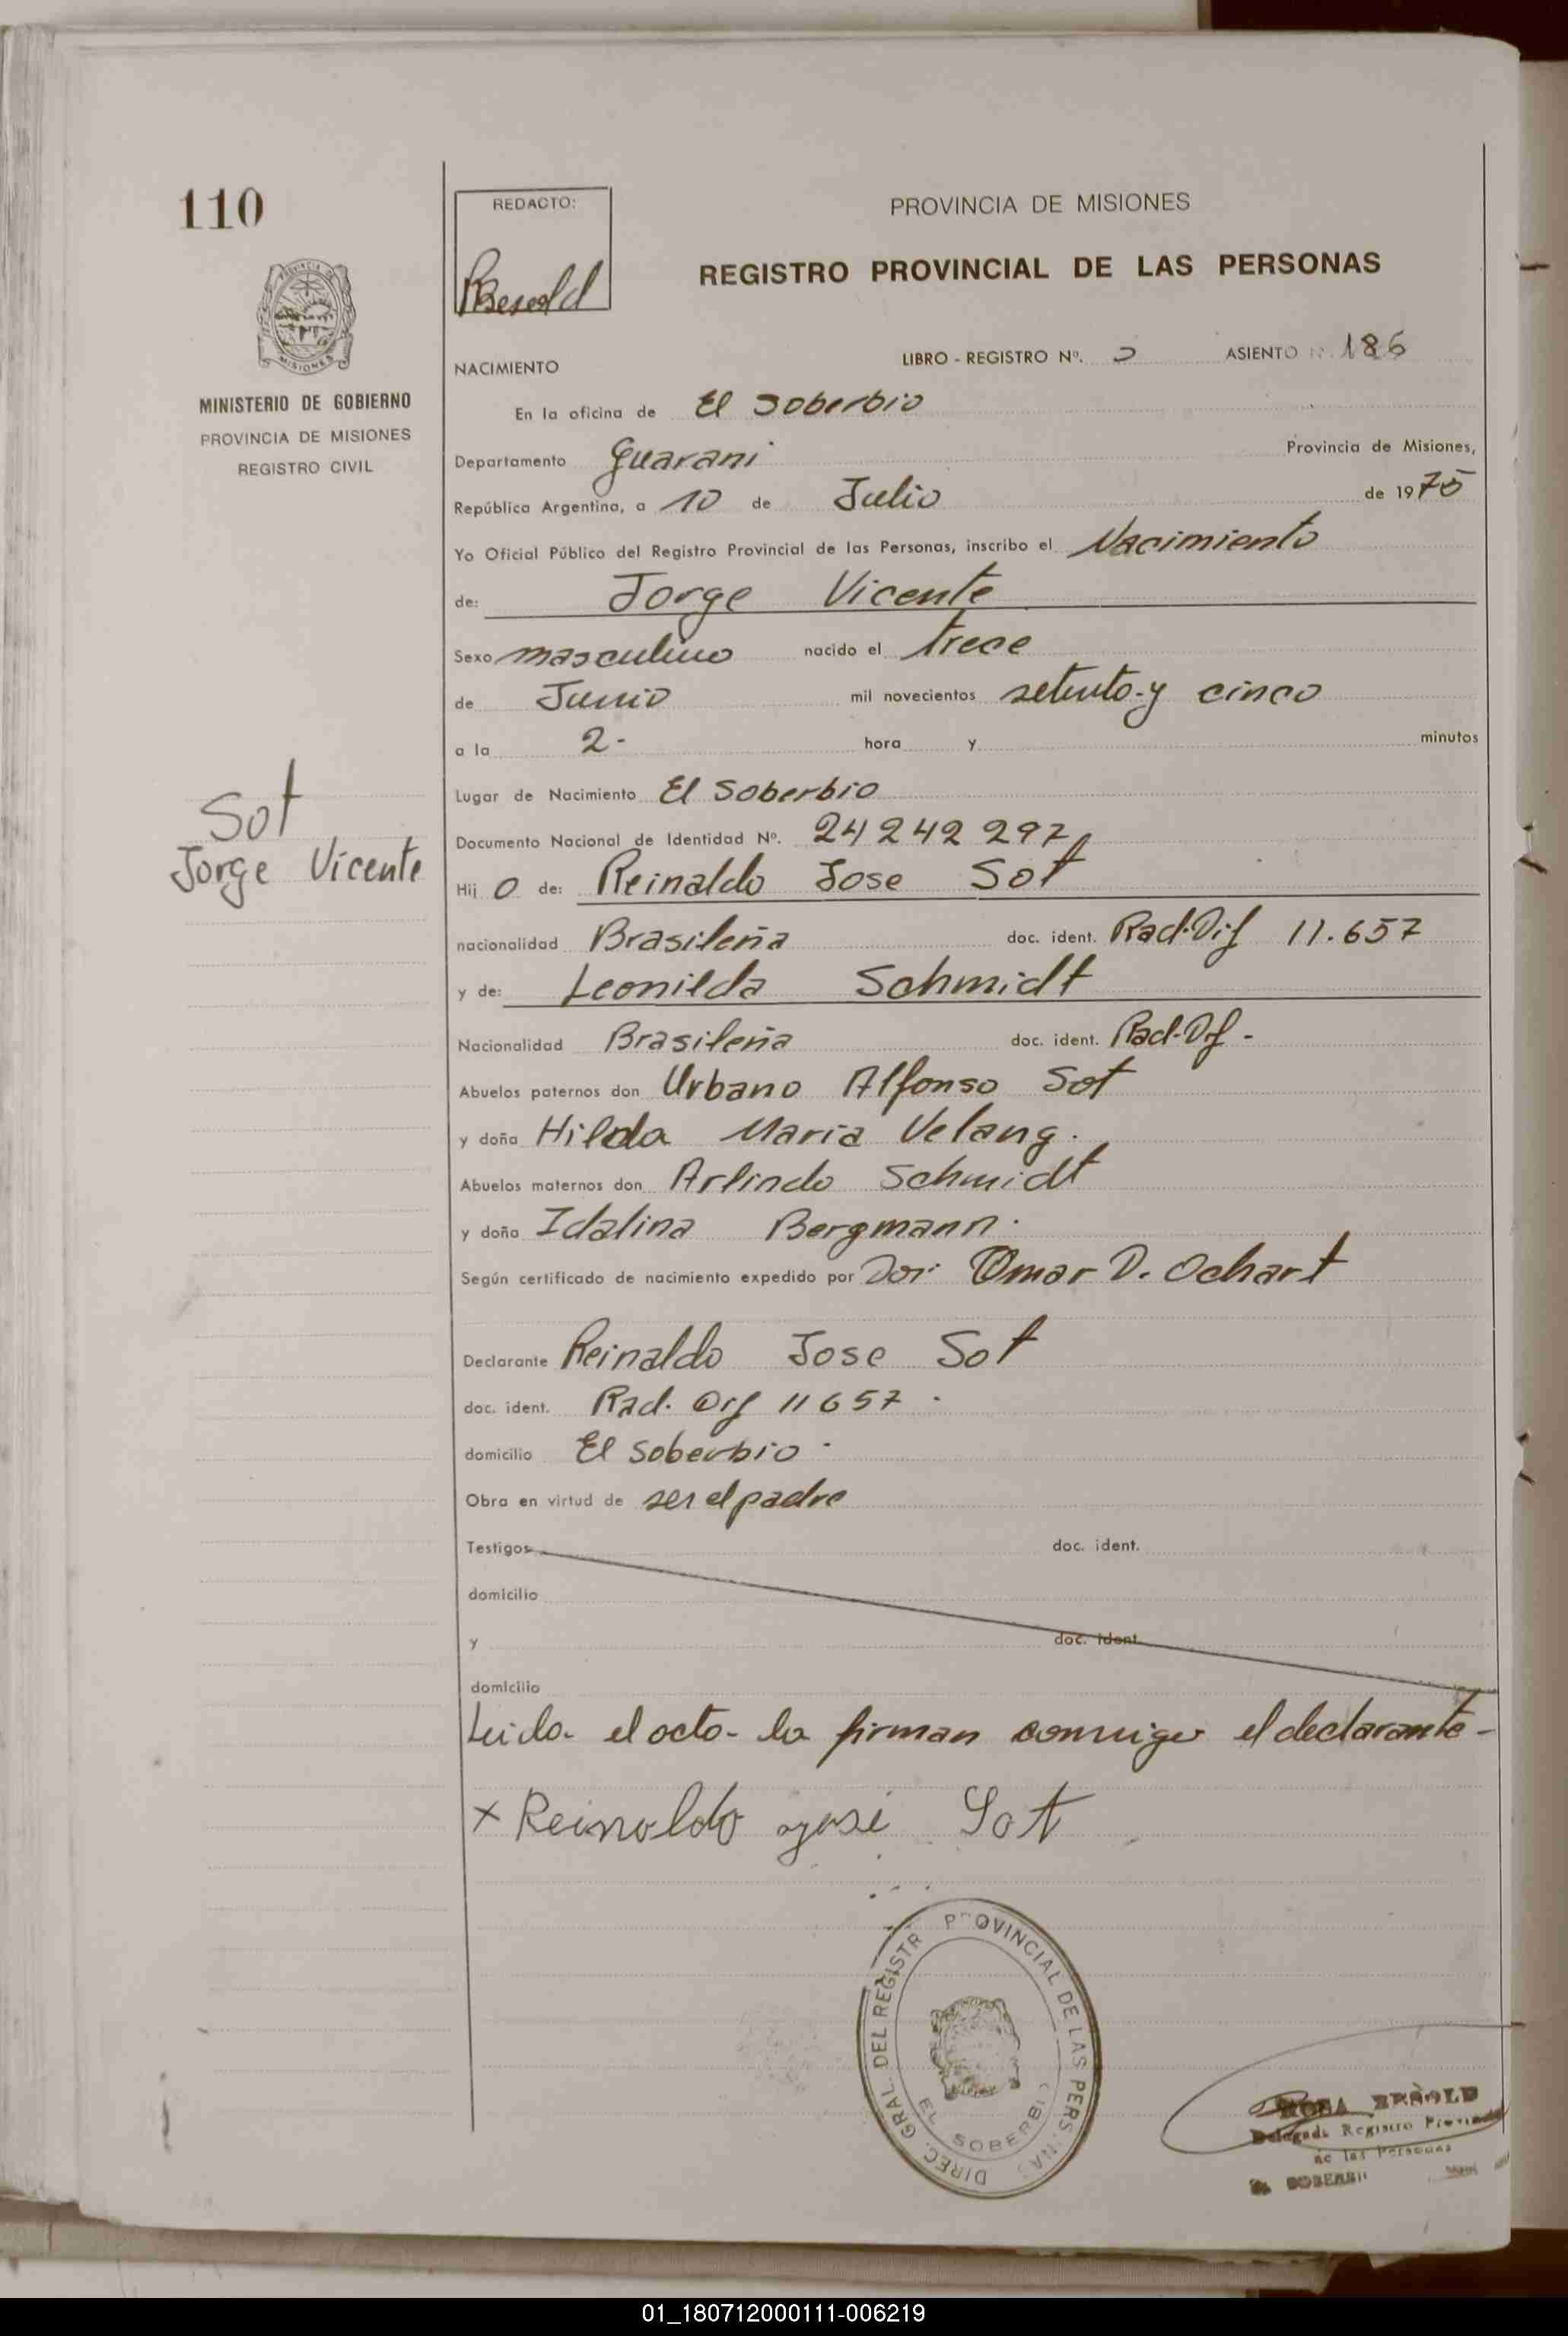 110
REDACTO:
PROVINCIA DE MISIONES
REGISTRO PROVINCIAL DE LAS PERSONAS
PROVINCIA DE
MISIONES
MINISTERIO DE GOBIERNO
PROVINCIA DE MISIONES
REGISTRO CIVIL
NACIMIENTO
LIBRO - REGISTRO Nº. ASIENTO Nº. 186
En la oficina de El Soberbio
Departamento Guarani Provincia de Misiones,
República Argentina, a 10 de Julio de 1975
Yo Oficial Público del Registro Provincial de las Personas, inscribo el Nacimiento
de: Jorge Vicente
Sexo masculino nacido el trece
de Junio mil novecientos setenta y cinco
a la 2- hora y minutos
Lugar de Nacimiento El Soberbio
Documento Nacional de Identidad Nº. 24242297
Sot
Jorge Vicente
Hij o de: Reinaldo Jose Sot
nacionalidad Brasileña doc. ident. Rad. Dif 11.657
y de: Leonilda Schmidt
Nacionalidad Brasileña doc. ident. Rad. Dif -
Abuelos paternos don Urbano Alfonso Sot
y doña Hilda Maria Velang.
Abuelos maternos don Arlindo Schmidt
y doña Idalina Bergmann.
Según certificado de nacimiento expedido por Omar D. Ochart
Declarante Reinaldo Jose Sot
doc. ident. Rad. 11657.
domicilio El Soberbio.
Obra en virtud de ser el padre
Testigos doc. ident.
domicilio
y doc. ident.
domicilio
Leida el acta la firman conmigo el declarante-
x Reinoldo José Sot
DIREC. GRAL. DEL REGISTR PROVINCIAL DE LAS PERS NAS
EL SOBERBI
Delegada Registro Provincial
de las Personas
01_180712000111-006219